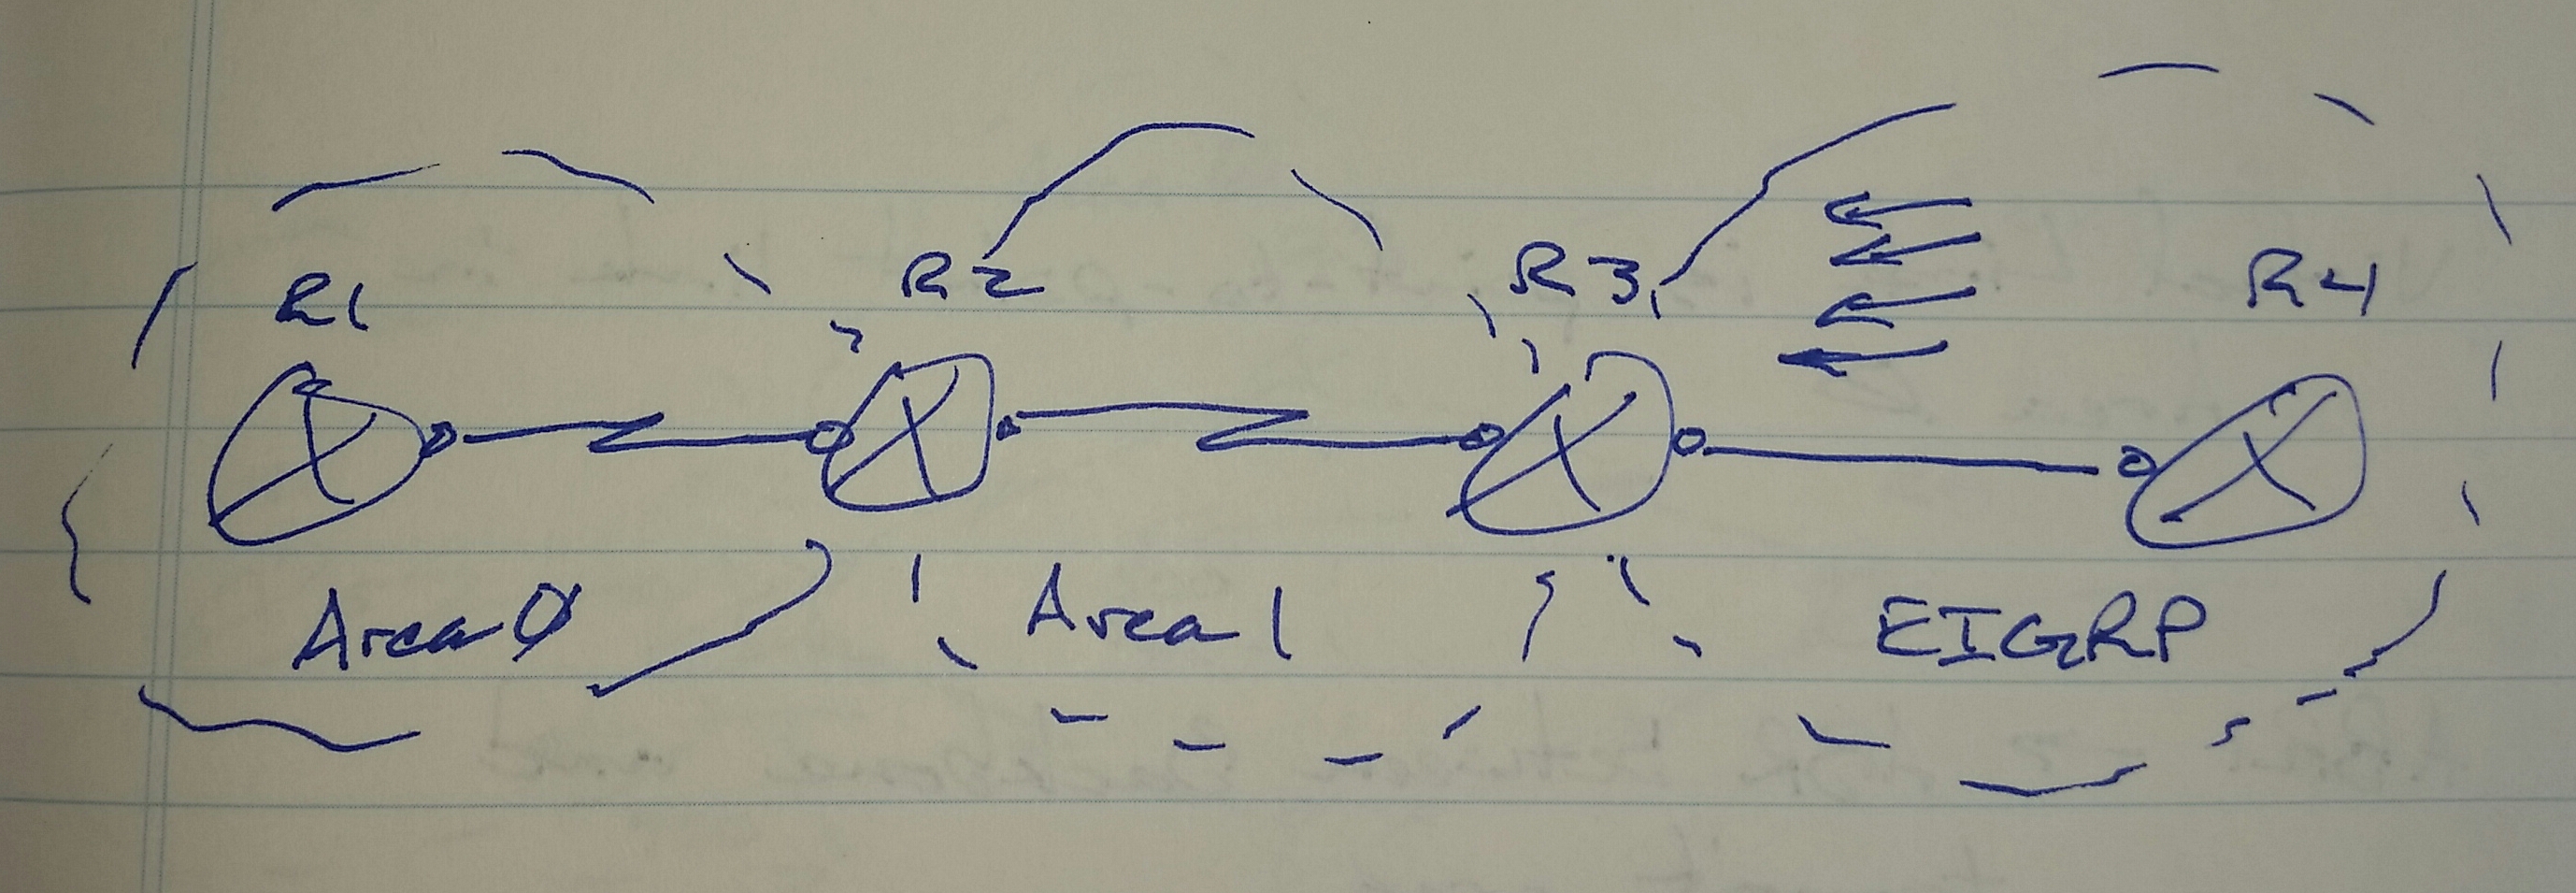 R1 R2 R3 R4
Area 0 Area 1 EIGRP